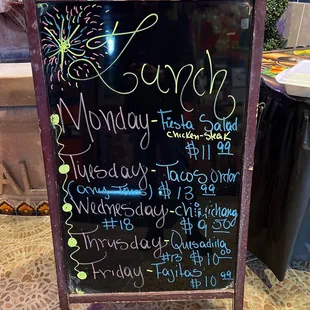 Lunch
Monday-Fiesta Salad
Chicken-Steak
$11 99
Tuesday-Tacos order
any
$13 99
Wednesday-chimichang
#18 $9 50
Thrusday-Quesadilla
#13 $10 00
Friday-Fajitas
$10 99